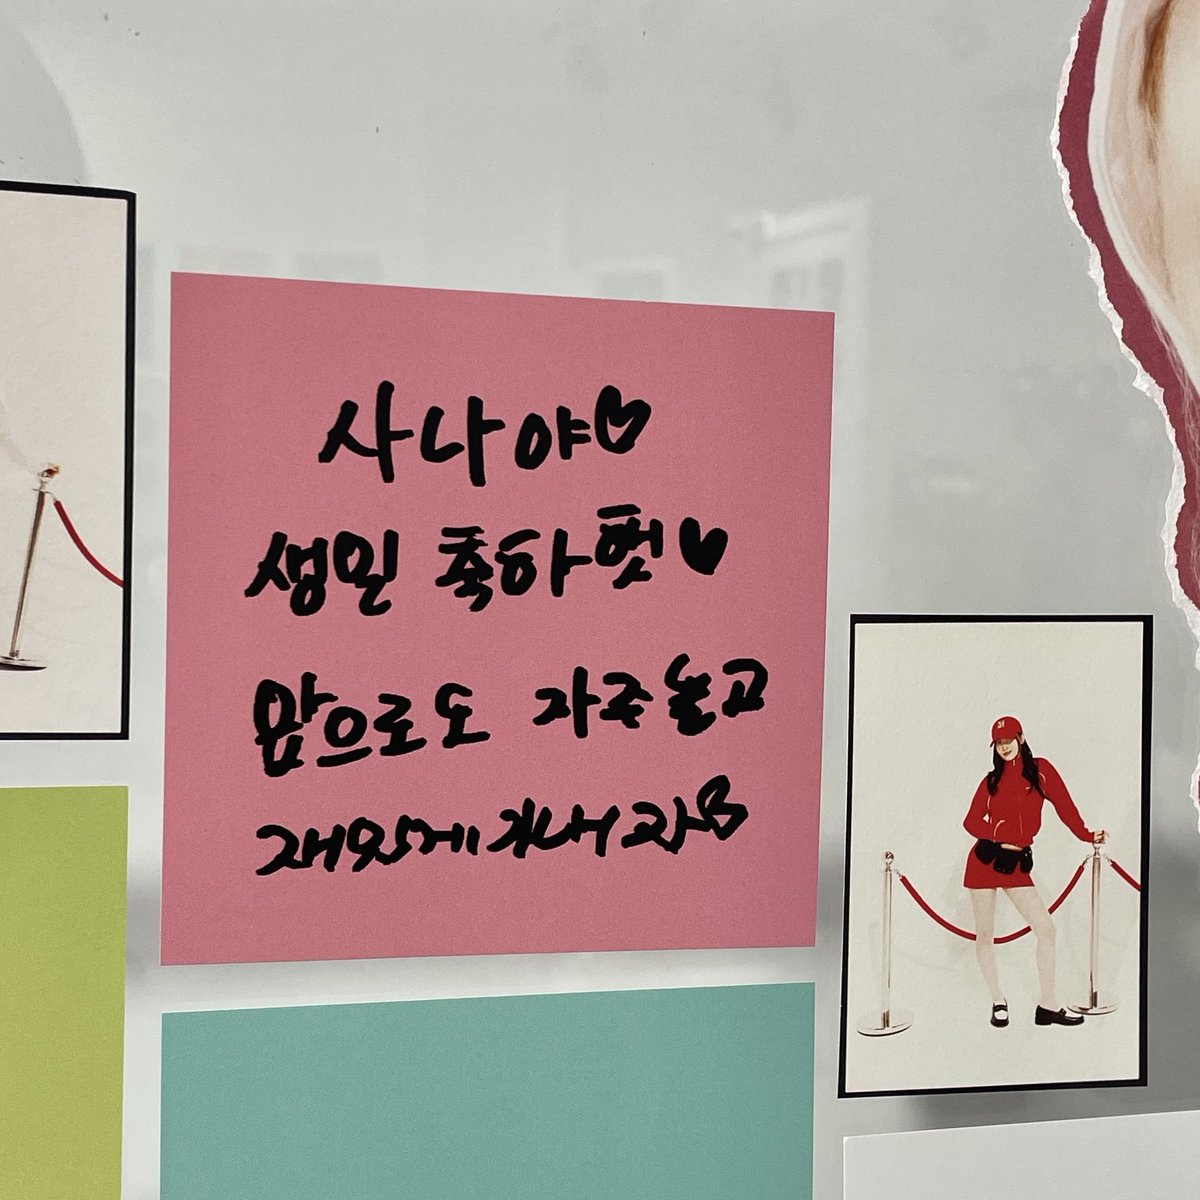 사나야♡
생일 축하헛♥
앞으로도 자주 놀고
재밌게 지내자♡